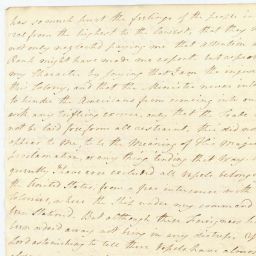 has so much hurt the feelings of the people in
ral from the highest to the lowest, that they
not only neglected paying me that attention
Rank might have made me expect but
my Character by saying that I am the
this Colony, and that the Minister never
to hinder the Americans from coming into
with any trifling excuse, only that the Trade
not be laid free from all restraint, this did not
appear to Me, to be the Meaning of His Maj
Proclamation, or any thing tending that way.
quently I have ever excluded all Vessels belong
the United States, from a free intercourse with
Colonies, where the Ship under my command
been Stationed. But although these Foreigners have
been order'd away not being in any distress
Lord astonishing to tell these Vessels have almost